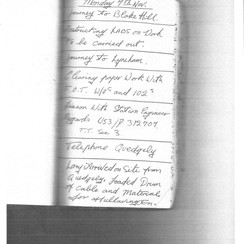 Monday 9th Nov.
Journey to Blake Hill.
Instructing LAOS on Work
to be carried out.
Journey to Lyneham.
Clearing paper Work With
T.O.T. W/O's and 102's
Liaison With Station Engineer
Regards U53/P 312709
T.T. Sec 3
Telephone Quedgely
Lorry Arrived on Site from
Quedgely, Loaded Drum
of Cable and Materials
for Hullavington.